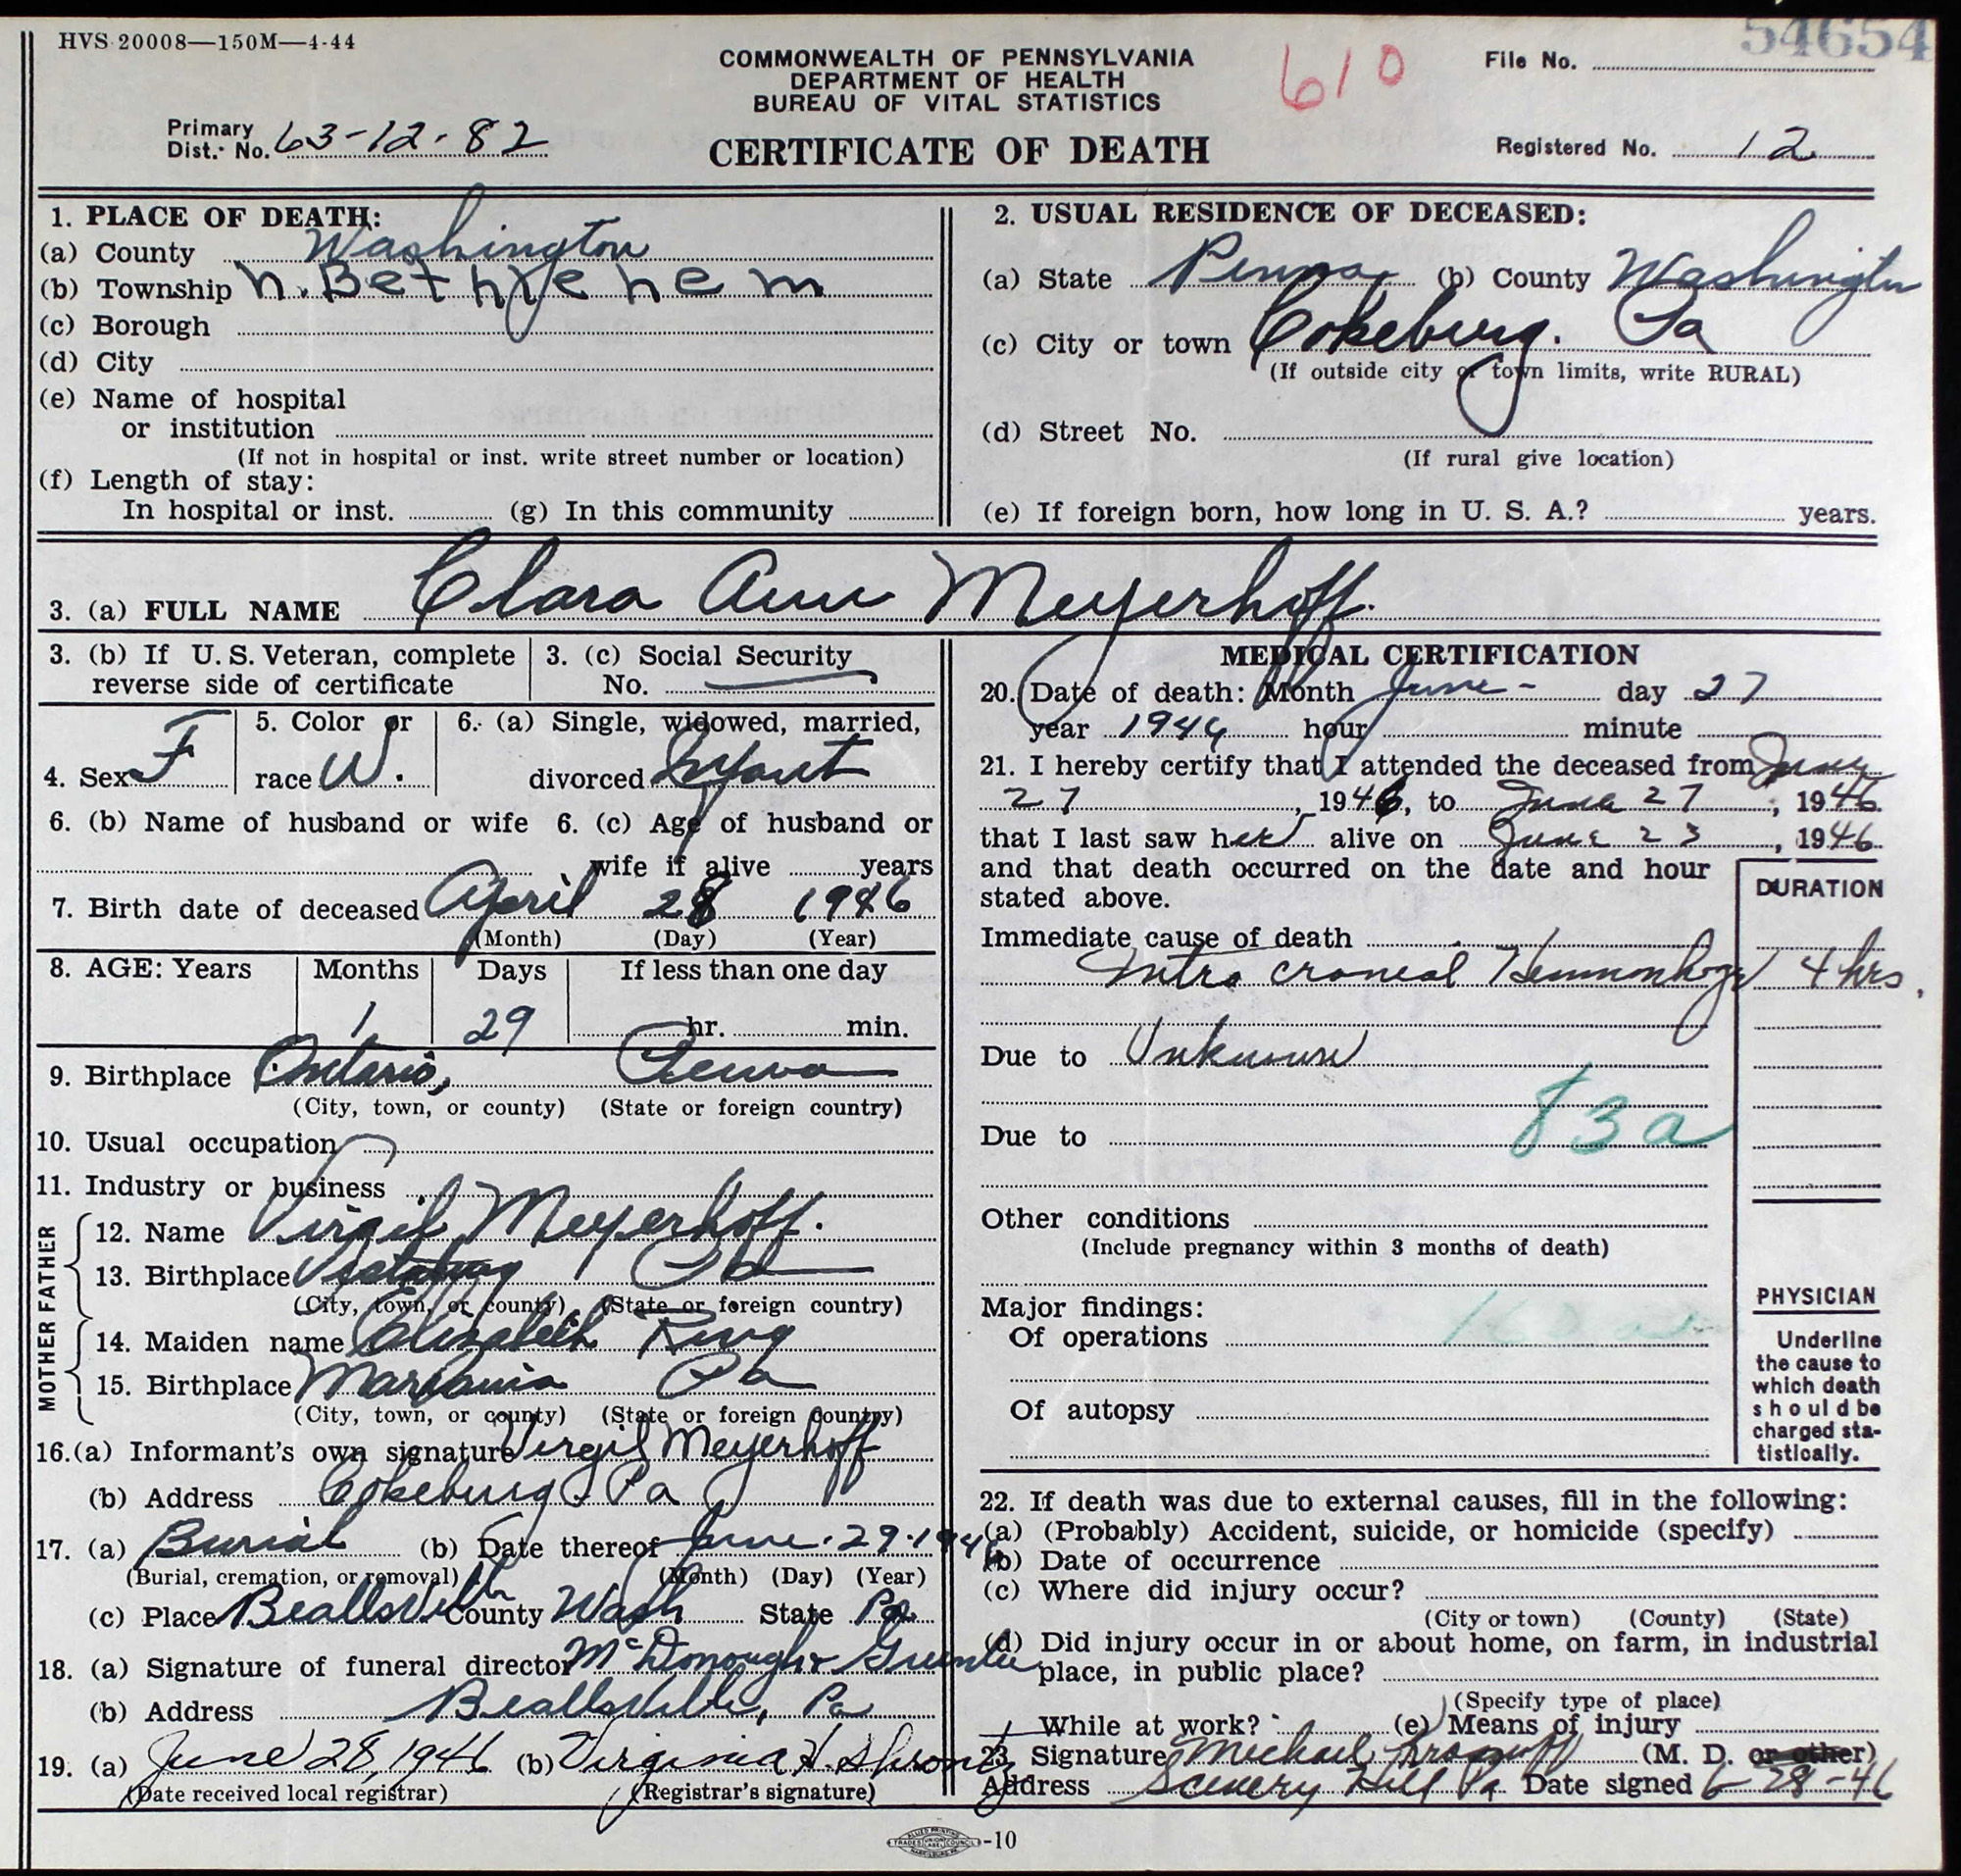 HVS 20008—150M—4-44
54654
COMMONWEALTH OF PENNSYLVANIA
DEPARTMENT OF HEALTH
BUREAU OF VITAL STATISTICS
610
File No.
Primary
Dist. No. 63-12-82
CERTIFICATE OF DEATH
Registered No. 12
1. PLACE OF DEATH:
(a) County Washington
(b) Township N. Bethlehem
(c) Borough
(d) City
(e) Name of hospital
or institution
(If not in hospital or inst. write street number or location)
(f) Length of stay:
In hospital or inst. (g) In this community
2. USUAL RESIDENCE OF DECEASED:
(a) State Penna, (b) County Washington
(c) City or town Cokeburg. Pa
(If outside city or town limits, write RURAL)
(d) Street No.
(If rural give location)
(e) If foreign born, how long in U. S. A.? years.
3. (a) FULL NAME Clara Ann Meyerhoff.
3. (b) If U. S. Veteran, complete
reverse side of certificate
3. (c) Social Security
No.
4. Sex F
5. Color or
race W.
6. (a) Single, widowed, married,
divorced Infant
6. (b) Name of husband or wife 6. (c) Age of husband or
wife if alive years
7. Birth date of deceased April 28 1946
(Month) (Day) (Year)
8. AGE: Years Months Days If less than one day
1 29 hr. min.
9. Birthplace Ontario, Penna
(City, town, or county) (State or foreign country)
10. Usual occupation
11. Industry or business
FATHER
12. Name Virgil Meyerhoff.
13. Birthplace Pa
(City, town, or county) (State or foreign country)
MOTHER
14. Maiden name Elizabeth Ring
15. Birthplace Marianna Pa
(City, town, or county) (State or foreign country)
16.(a) Informant's own signature Virgil Meyerhoff
(b) Address Cokeburg Pa
17. (a) Burial (b) Date thereof June. 29. 1946
(Burial, cremation, or removal) (Month) (Day) (Year)
(c) Place Beallsville County Wash State Pa
18. (a) Signature of funeral director McDonough & Greenlee
(b) Address Beallsville, Pa
19. (a) June 28, 1946 (b) Virginia H. Shrontz
(Date received local registrar) (Registrar's signature)
MEDICAL CERTIFICATION
20. Date of death: Month June - day 27
year 1946 hour minute
21. I hereby certify that I attended the deceased from June
27, 1946, to June 27, 1946
that I last saw her alive on June 23, 1946
and that death occurred on the date and hour
stated above.
DURATION
Immediate cause of death
Intra cranial Hemmorhage 4 hrs.
Due to Unknown
83a
Due to
Other conditions
(Include pregnancy within 3 months of death)
Major findings:
Of operations
Of autopsy
PHYSICIAN
Underline
the cause to
which death
should be
charged sta-
tistically.
22. If death was due to external causes, fill in the following:
(a) (Probably) Accident, suicide, or homicide (specify)
(b) Date of occurrence
(c) Where did injury occur?
(City or town) (County) (State)
(d) Did injury occur in or about home, on farm, in industrial
place, in public place?
(Specify type of place)
While at work? (e) Means of injury
23. Signature Michael (M. D. or other)
Address Scenery Hill Pa Date signed 6-28-46
-10